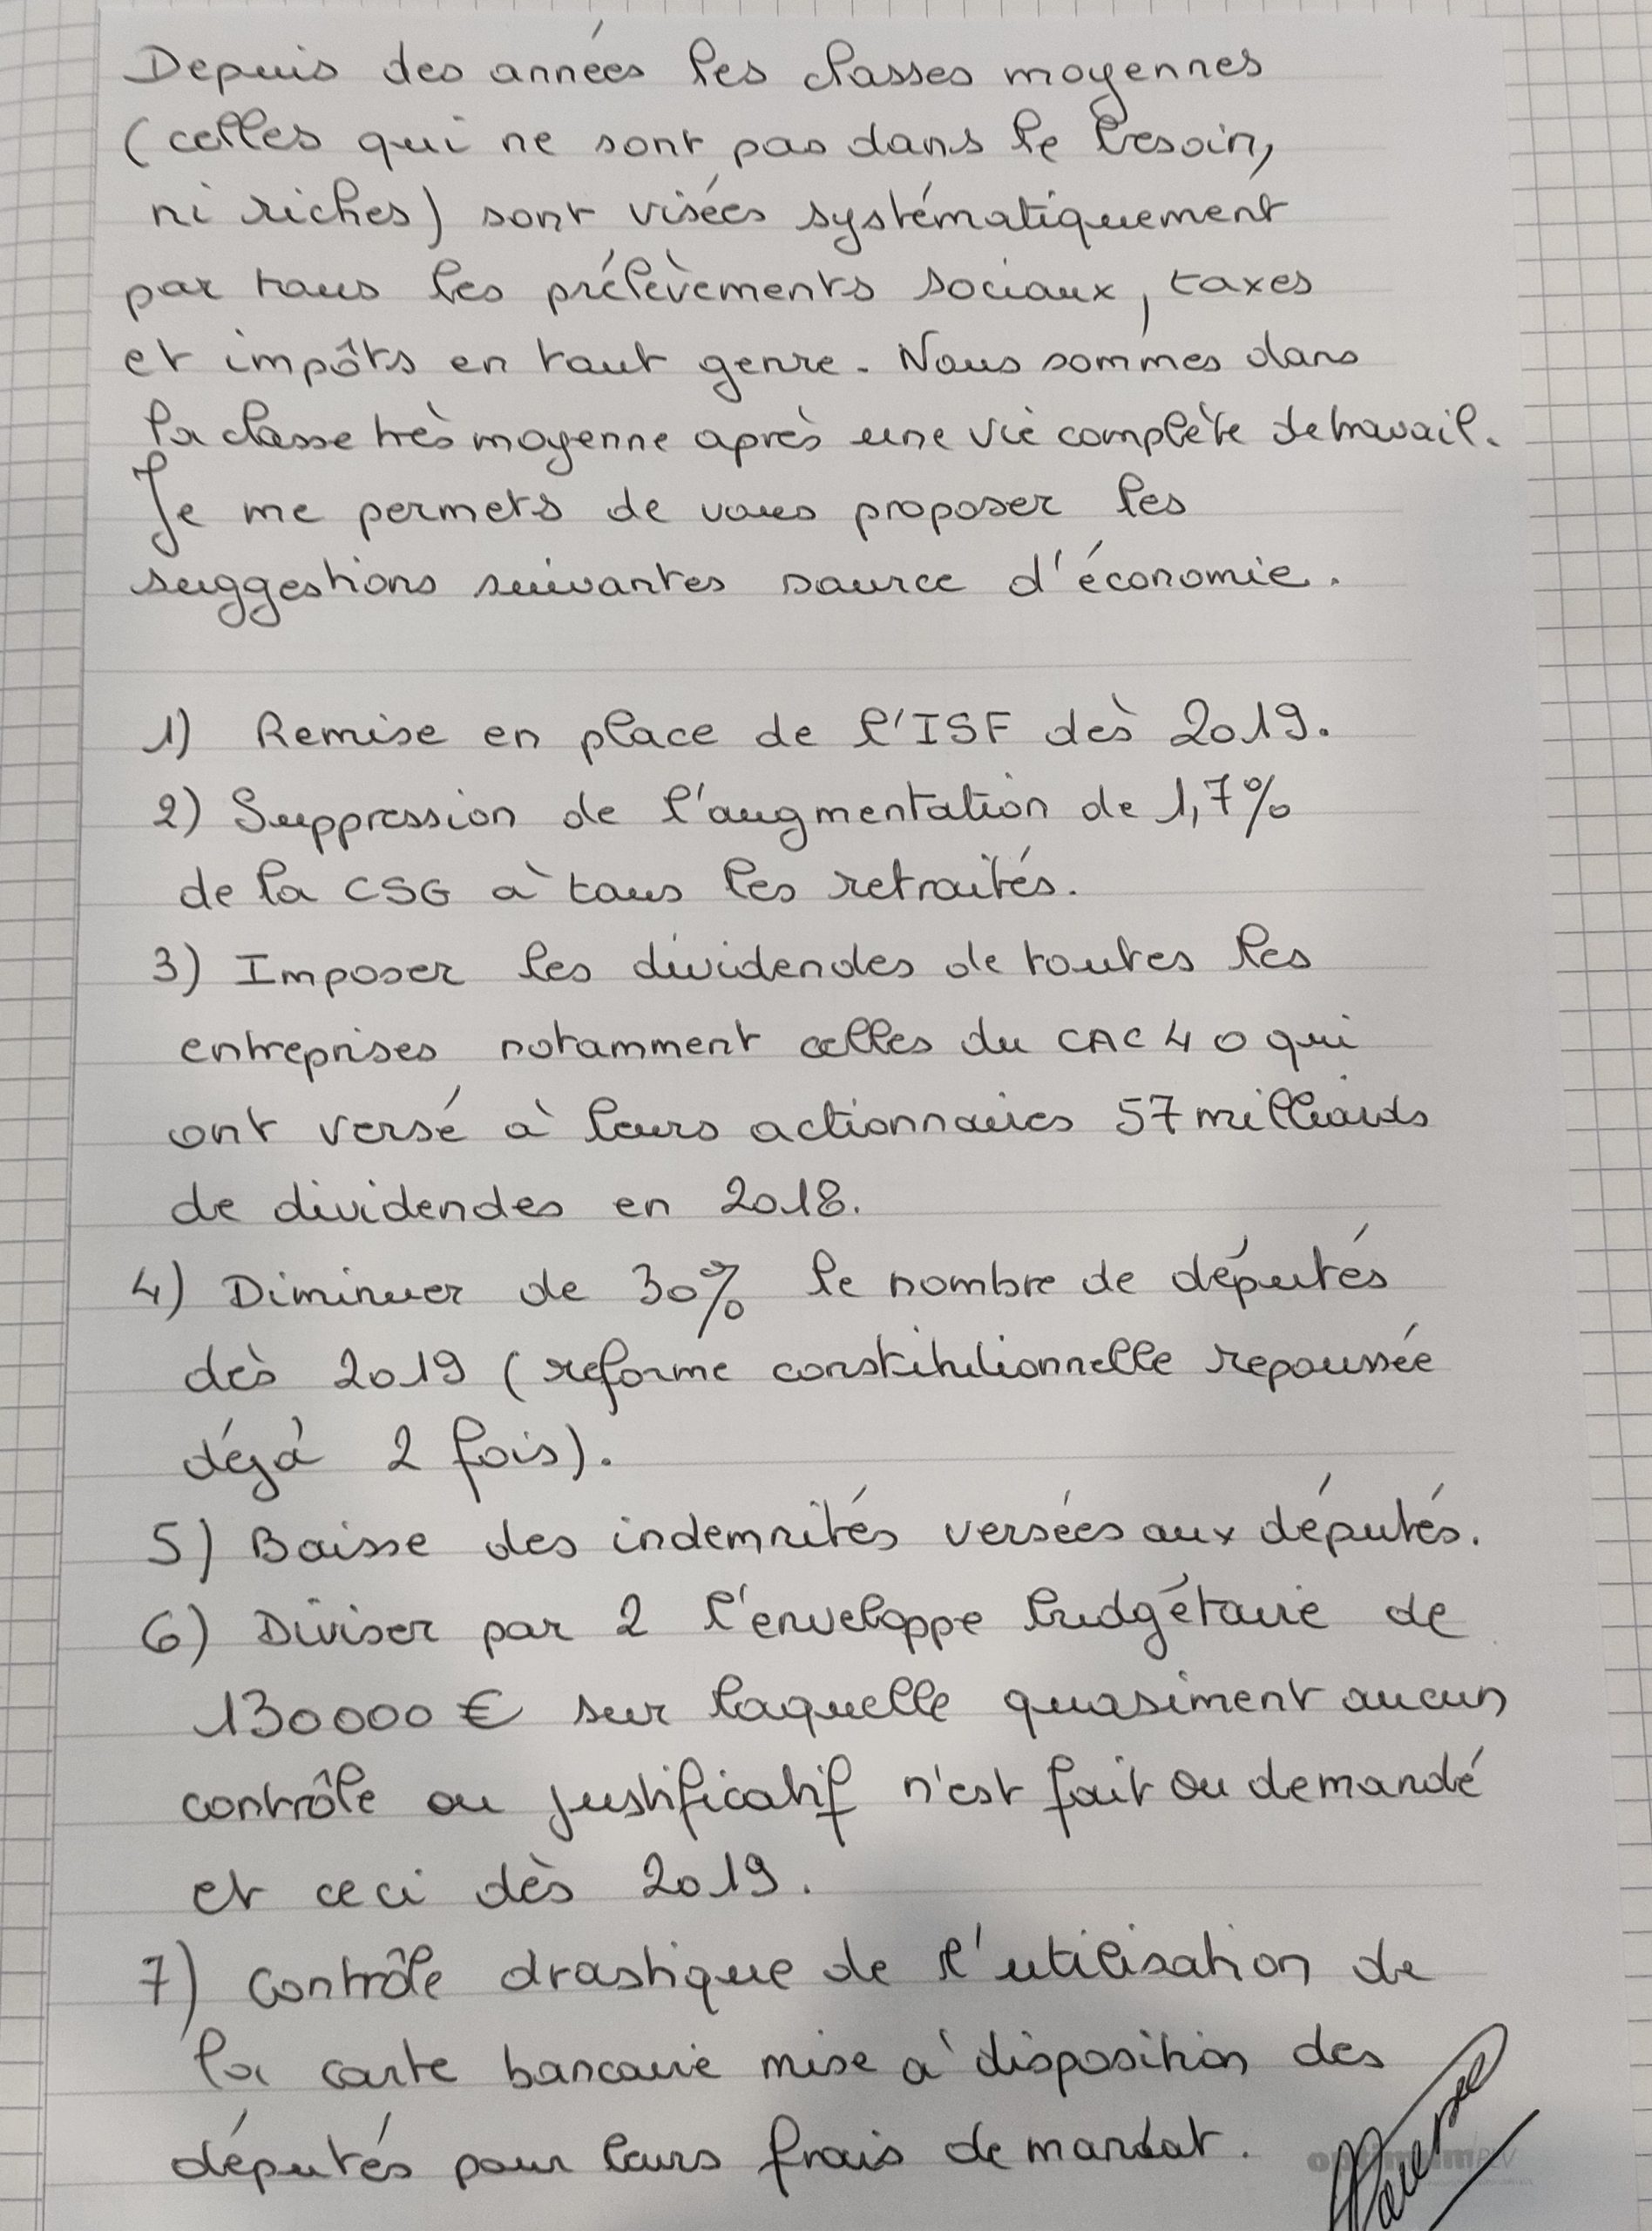 Depuis des années les classes moyennes
(celles qui ne sont pas dans le besoin,
ni riches) sont visées systématiquement
par tous les prélèvements sociaux, taxes
et impôts en tout genre. Nous sommes dans
la classe très moyenne après une vie complète de travail.
Je me permets de vous proposer les
suggestions suivantes source d'économie.
1) Remise en place de l'ISF dès 2019.
2) Suppression de l'augmentation de 1,7%
de la CSG à tous les retraités.
3) Imposer les dividendes de toutes les
entreprises notamment celles du CAC 40 qui
ont versé à leurs actionnaires 57 milliards
de dividendes en 2018.
4) Diminuer de 30% le nombre de députés
dès 2019 (reforme constitutionnelle repoussée
déjà 2 fois).
5) Baisse des indemnités versées aux députés.
6) Diviser par 2 l'enveloppe budgétaire de
130000 € sur laquelle quasiment aucun
contrôle ou justificatif n'est fait ou demandé
et ceci dès 2019.
7) Contrôle drastique de l'utilisation de
la carte bancaire mise à disposition des
députés pour leurs frais de mandat.